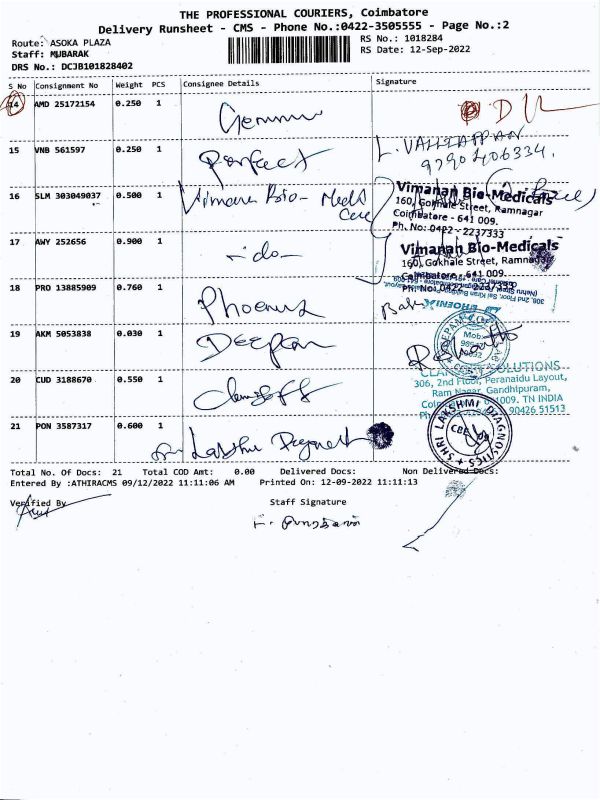 THE PROFESSIONAL COURIERS, Coimbatore
Delivery Runsheet - CMS - Phone No.:0422-3505555 - Page No.:2
Route: ASOKA PLAZA
RS No.: 1018284
Staff: MUBARAK
RS Date: 12-Sep-2022
DRS No.: DCJB101828402
S No Consignment No Weight PCS Consignee Details Signature
14 AMD 25172154 0.250 1
15 VNB 561597 0.250 1 Perfect
9790406334.
16 SLM 303049037 0.500 1 Vimana Bio- Medi Care
Vimanan Bio-Medicals
160, Gokhale Street, Ramnagar
Coimbatore - 641 009.
Ph. No: 0422 - 2237333
17 AWY 252656 0.900 1 -ido-
Vimanan Bio-Medicals
160, Gokhale Street, Ramnagar
Coimbatore - 641 009.
Ph. No: 0422 - 2237333
18 PRO 13885909 0.760 1 Phoenix
PHOENIX
19 AKM 5053838 0.030 1 Deepan
20 CUD 3188670 0.550 1
SOLUTIONS
306, 2nd Floor, Peranaidu Layout,
Ram Nagar, Gandhipuram,
1009. TN INDIA
90426 51513
21 PON 3587317 0.600 1
SHRI LAKSHMI DIAGNOSTICS
CBE
Total No. Of Docs: 21 Total COD Amt: 0.00 Delivered Docs: Non Delivered Docs:
Entered By :ATHIRACMS 09/12/2022 11:11:06 AM Printed On: 12-09-2022 11:11:13
Verified By Staff Signature